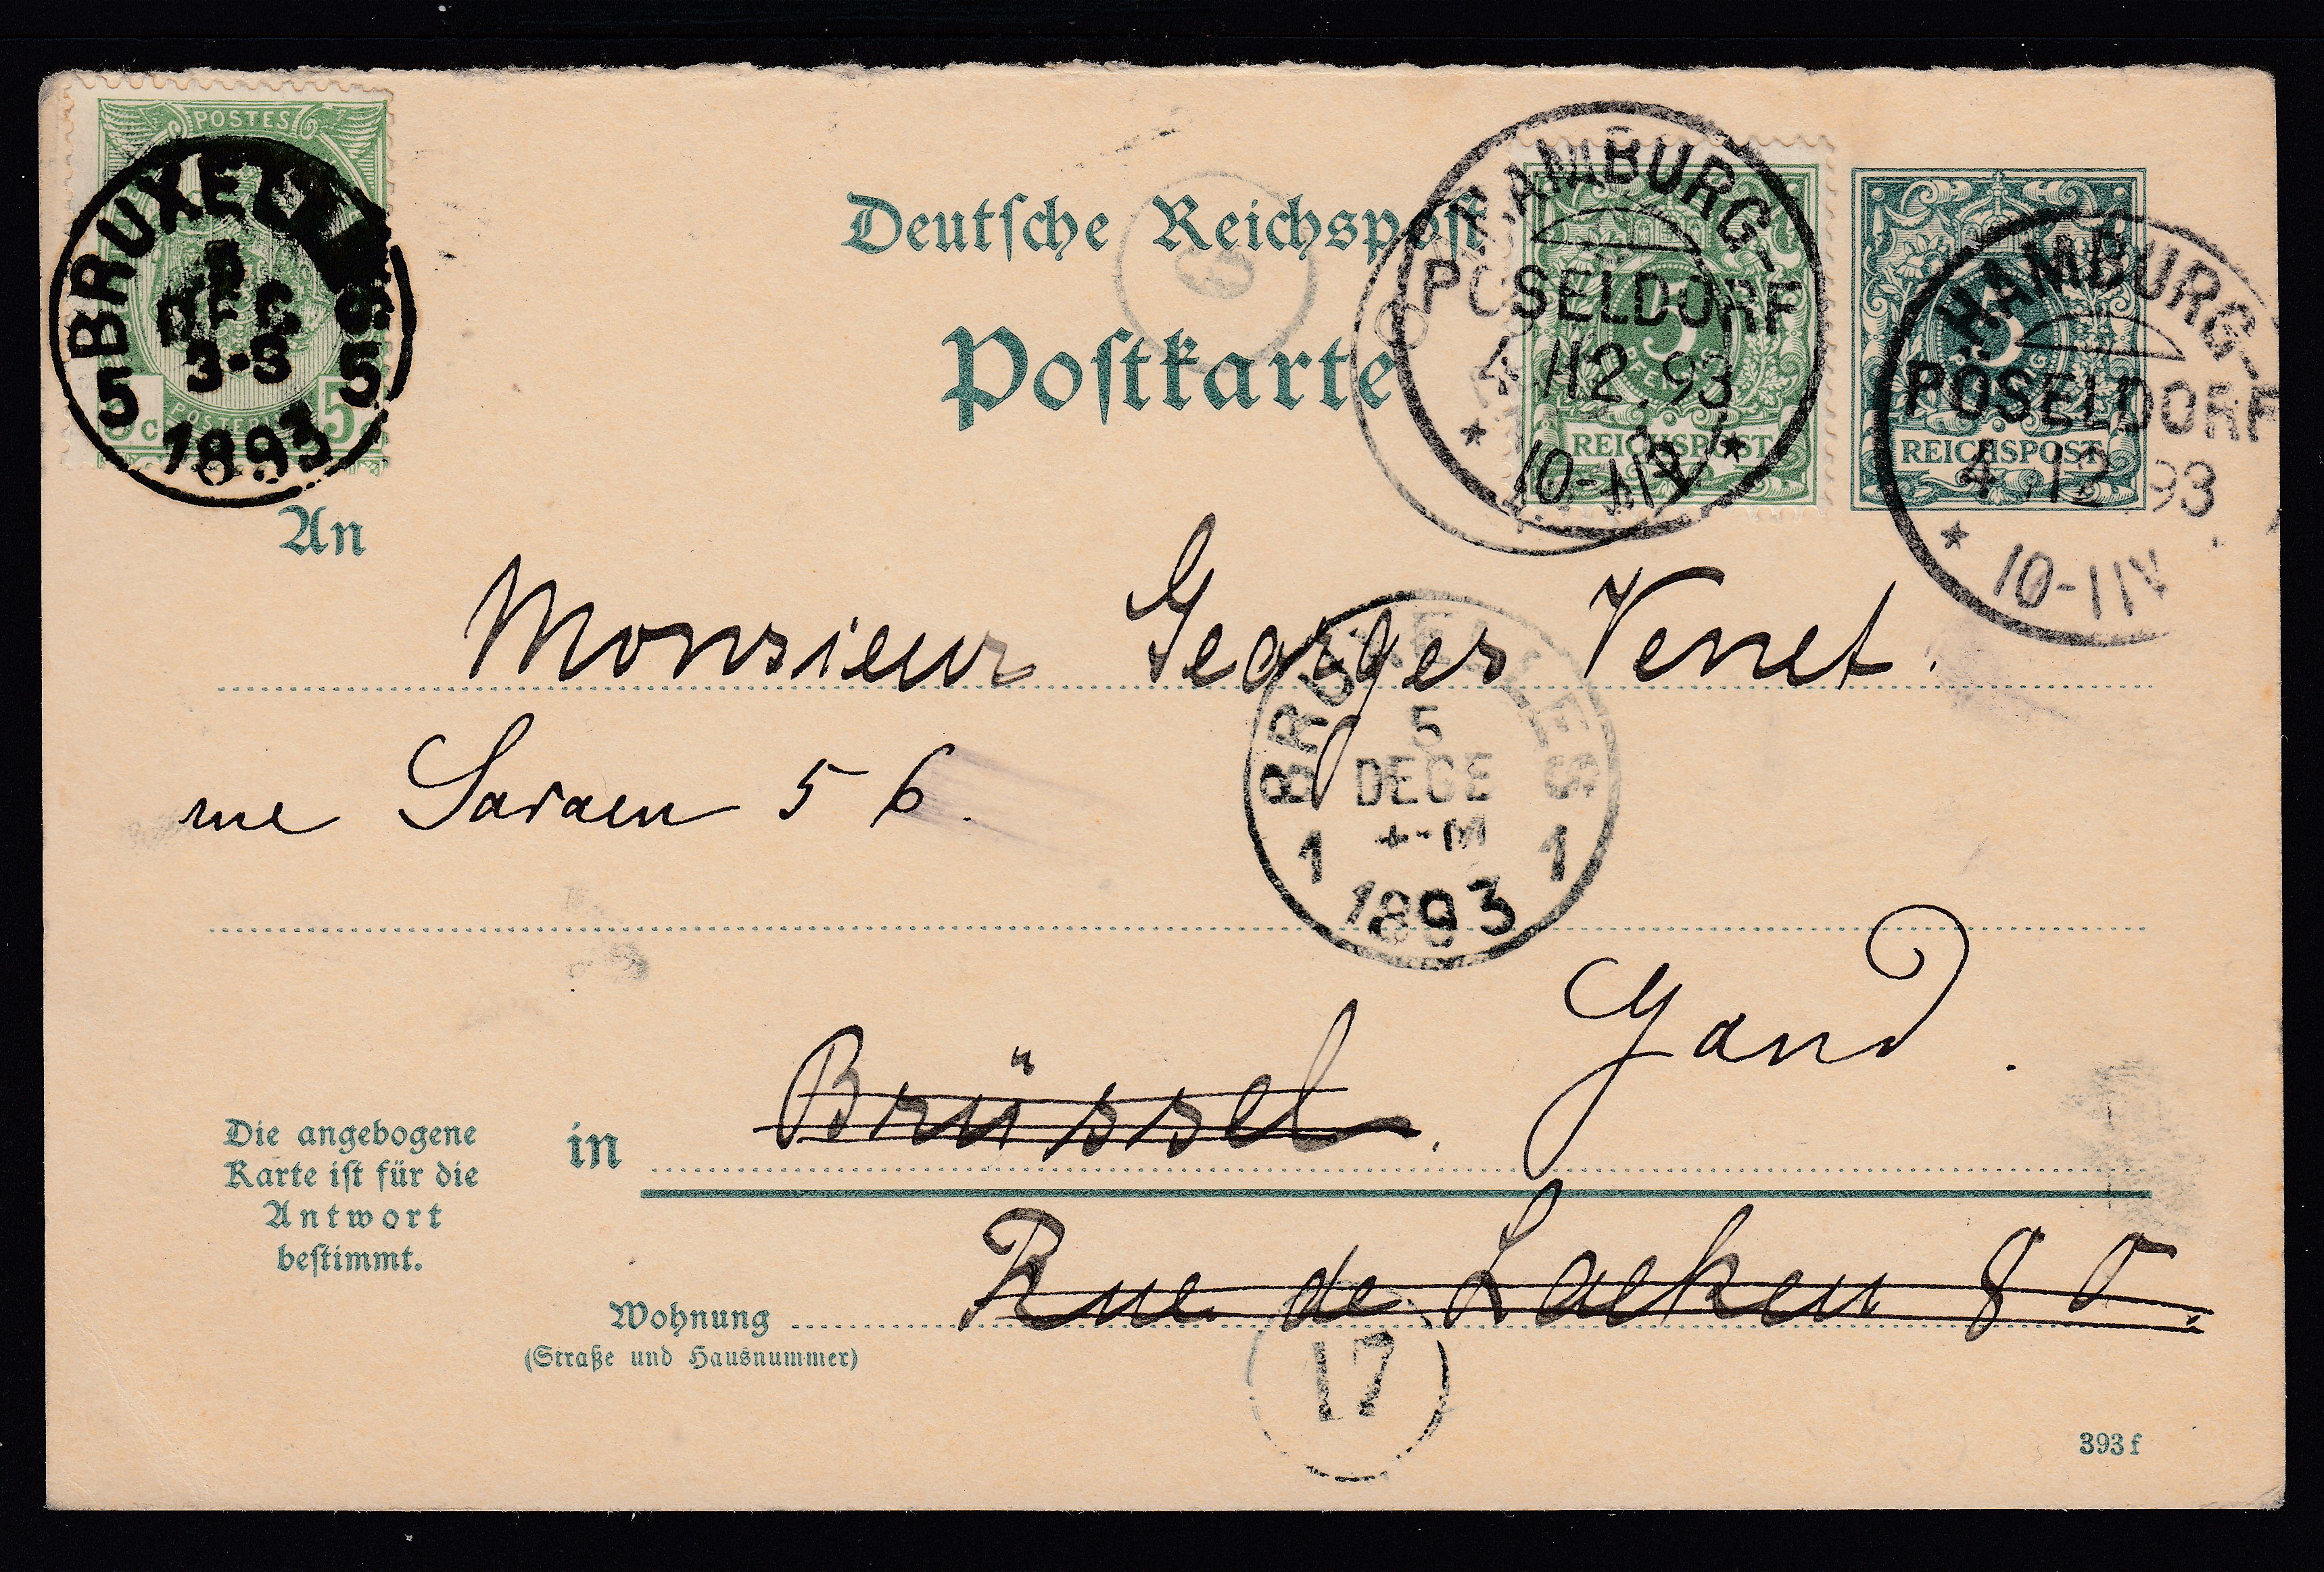 POSTES
BRUXELLES
5
DEC
3-S
5 5
1893
Deutsche Reichspost
Postkarte
HAMBURG-
PÖSELDORF
4.12.93
10-11V
5
PFENNIG
REICHSPOST
HAMBURG-
PÖSELDORF
4.12.93
10-11V
5
REICHSPOST
An
Monsieur Georges Venet.
rue 56.
BRUXELLES
5
DECE
1 1
1893
Gand.
in Brüssel.
Die angebogene
Karte ist für die
Antwort
bestimmt.
Rue de Laeken 80.
Wohnung
(Straße und Hausnummer)
17
393f